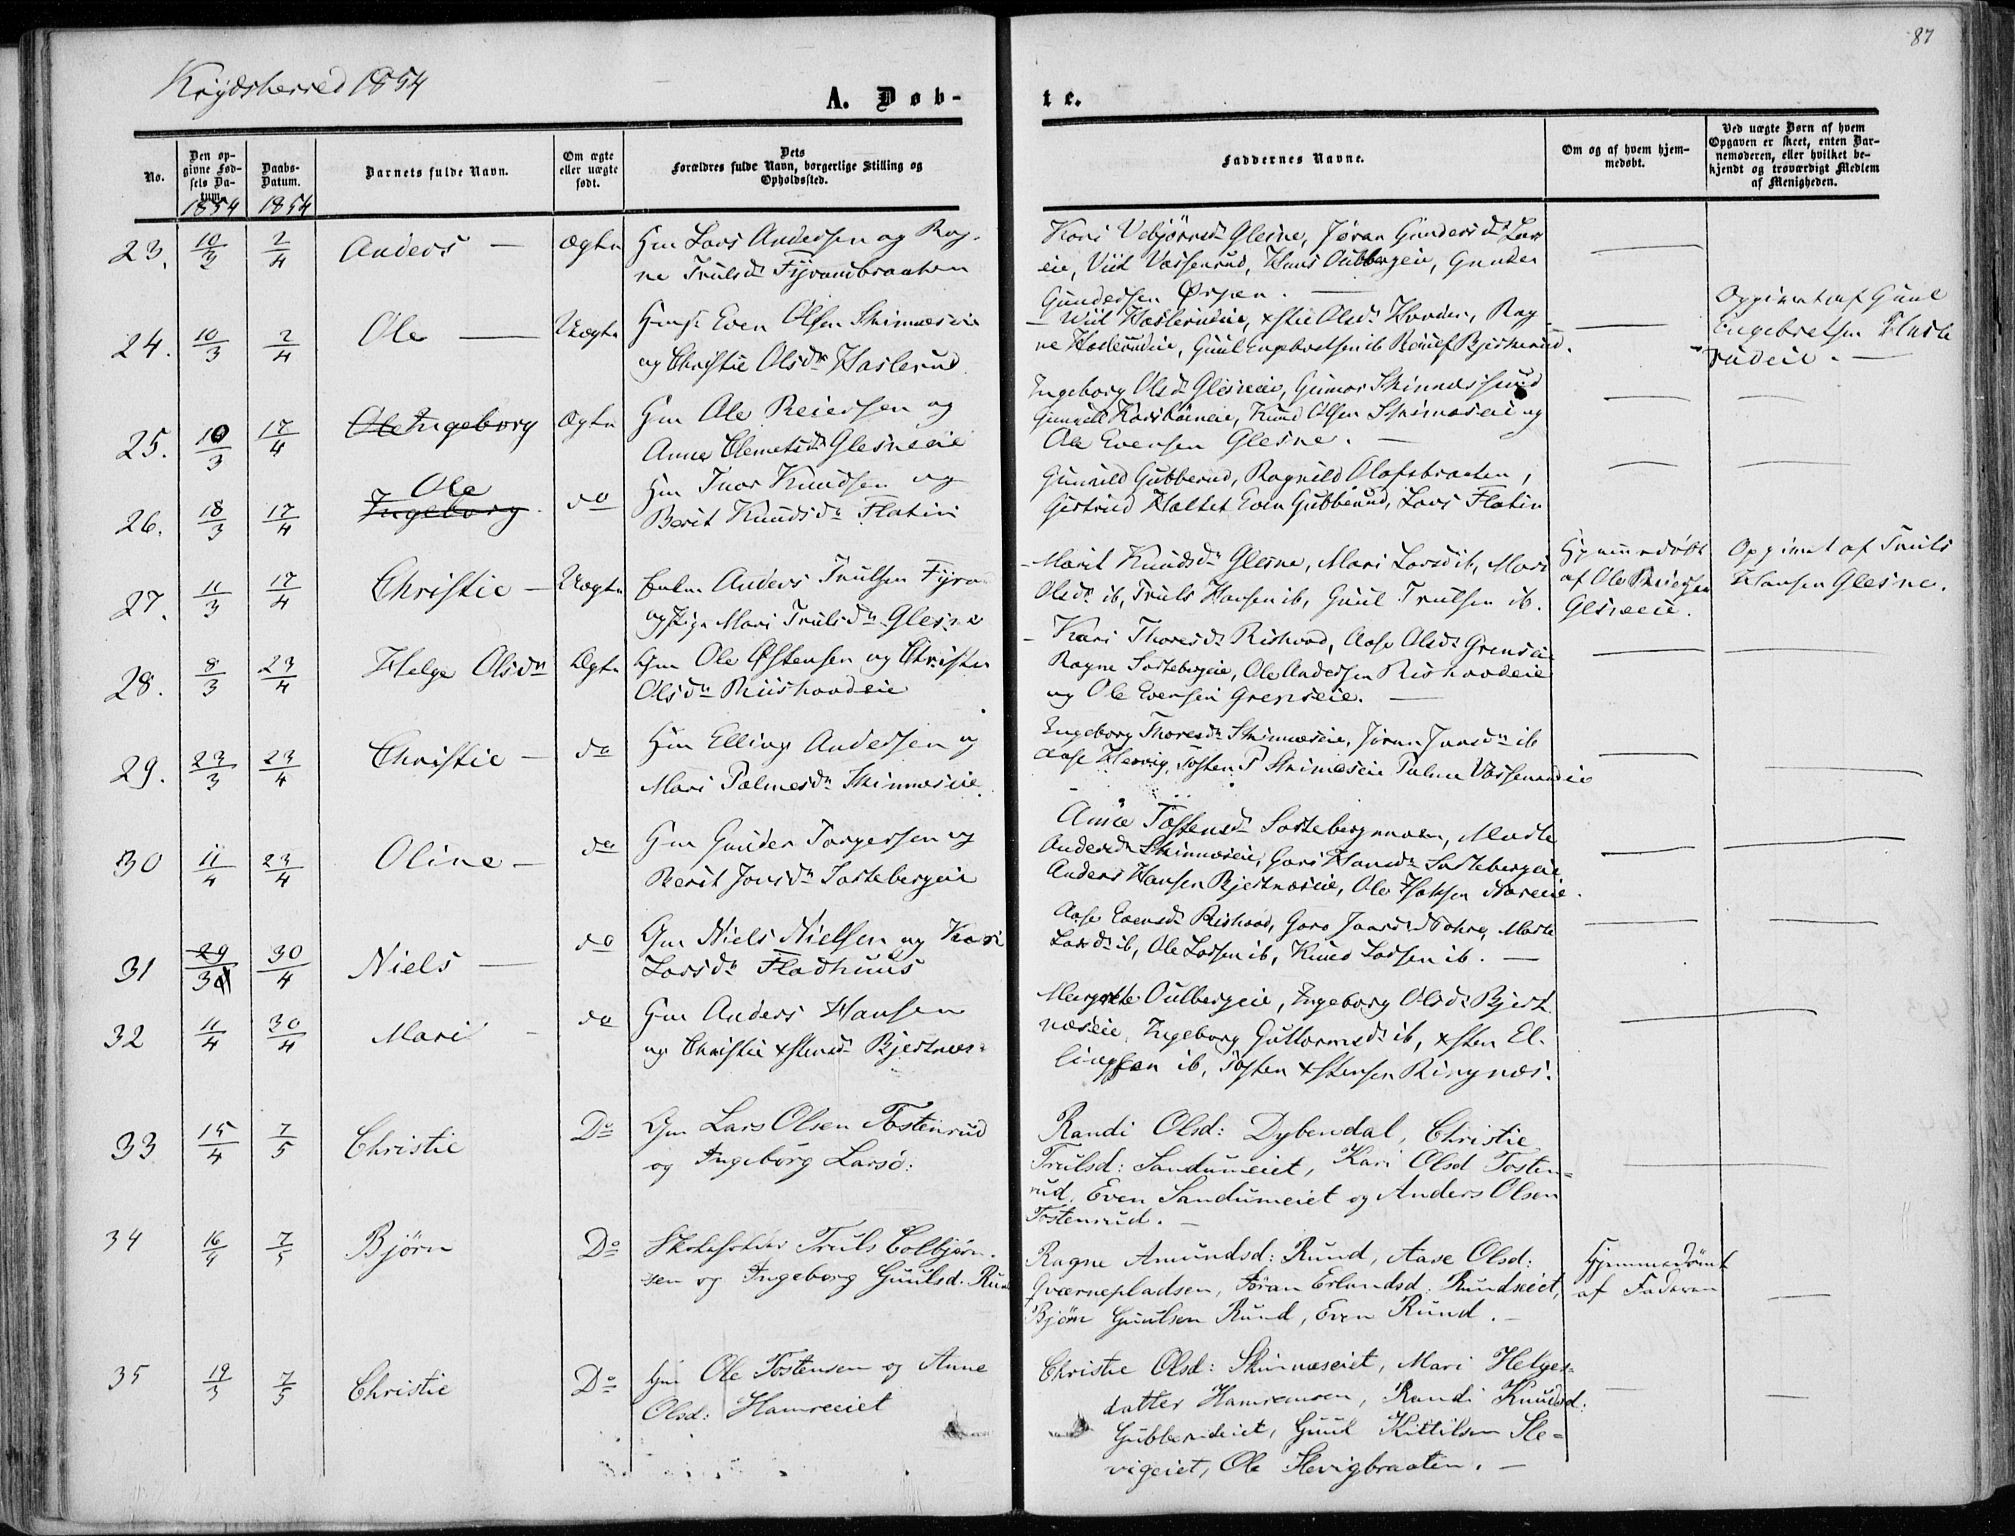 87
Krydsherred 1854
A. Døb-
te.
No.
Den op-
givne Fød-
sels Da-
tum.
1854
Daabs-
Datum.
1854
Barnets fulde Navn.
Om ægte
eller uægte
født.
Dets
Forældres fulde Navn, borgerlige Stilling og
Opholdssted.
Faddernes Navne.
Om og af hvem hjem-
medøbt.
Ved uægte Børn af hvem
Opgaven er skeet, enten Bar-
nemoderen, eller hvilket be-
kjendt og troværdigt Medlem
af Menigheden.
23. 10/2 2/4 Anders — Ægte Gm Lars Andersen og Rag-
ne Trulsdr Fyrandbraaten
Kari Vebjørnsdr Glesne, Jøran Gundersdr Lar
eie, Viil Vassenrud, Hans Oulbergeie, Gunder
Gundersen Ørpen. —
24. 10/3 2/4 Ole — Uægte Even Olsen Skinnæseie
og Christie Olsdr Haslerud
Wiil Haslerudeie, Xstie Olsdr Hovden, Rag
ne Haslerudeie, Guul Engebretsen ib Bjertnerud.
Opgivet af Guul
Engebretsen Hasle
rudeie. —
25. 10/3 17/4 Ole Ingeborg Ægte Gm Ole Reiersen og
Anne Clemetsdr Glesneeie
Ingeborg Olsdr Glesneeie, Gunor Skinnessund
Gunild Korsbøeneie, Knud Olsen Skinnæseie og
Ole Evensen Glesne. —
26. 18/3 17/4 Ole
Ingeborg. do Gm Ivar Knudsen og
Berit Knudsdr Flatin
Gunild Gubberud, Ragnild Olafsbraaten,
Gertrud Haltet Even Gubberud, Lars Flatin
27. 11/3 17/4 Christie — Uægte Anders Trulsen Fyrand
og Pige Mari Trulsdr Glesne
Marit Knudsdr Glesne, Mari Larsd ib, Mari
Olsdr ib, Truls Hansen ib, Guul Trulsen ib.
Hjemmedøbt
af Ole Reiersen
Glesneeie.
Opgivet af Truls
Hansen Glesne.
28. 8/3 23/4 Helge Olsdr Ægte Gm Ole Østensen og Christie
Olsdr Riishovdeie
Kari Thoresdr Rishovd, Aase Olsdr Grenseie
Ragne Sortebergeie, Ole Andersen Rishovdeie
og Ole Evensen Grenseie. —
29. 23/3 23/4 Christie — do Gm Elling Andersen og
Mari Palmesdr Skinnæseie.
Engeborg Thoresdr Skinnæseie, Jøran Jonsdr ib
Aase Hervig, Tosten P Skinnæseie Palme Vassenrudeie
30 11/4 23/4 Oline — do Gm Gunder Torgersen og
Berit Jonsdr Sortebergeie
Anne Tostensdr Sorteberg, Marte
Andersdr Skinnæseie, Gori Hansdr Sortebergeie
Anders Hansen Bjertnæseie, Ole Noreeie.
31 29/3 30/4 Niels — do Gm Niels Nielsen og Kari
Larsdr Fladhuus
Aase Evensdr Rishovd, Goro Jonsdr, Marte
Larsdr ib, Ole Larsen ib, Knud Larsen ib. —
32 11/4 30/4 Mari — do Gm Anders Hansen
og Christie Xstensdr Bjertnæs.
Margrethe Oulbergeie, Ingeborg Olsdr Bjert
næseie, Ingeborg Guttormsdr ib, Xsten El-
lingsen ib, Tosten Xstensen Ringnæs.
33 15/4 7/5 Christie Do Gm Lars Olsen Tostenrud
og Ingeborg Larsd:
Randi Olsd: Dybendal, Christie
Trulsd: Sandumeiet, Kari Olsd Tosten=
rud, Even Sandumeiet og Anders Olsen
Tostenrud. —
34 16/4 7/5 Bjørn Do Skoleholder Truls Colbjørn-
sen og Ingeborg Guulsd. Rund
Ragne Amundsd: Rund, Aase Olsd:
Qværnepladsen, Jøran Erlandsd. Rundeiet,
Bjørn Guulsen Rund, Even Rund. —
Hjemmedøbt
af Faderen
35 19/3 7/5 Christie Do Gm Ole Tostensen og Anne
Olsd: Hamreeiet
Christie Olsd: Skinnæseiet, Mari Helges=
datter Hamremoen, Randi Knudsd:
Gubberudeiet, Guul Kittilsen Sle=
vigeiet, Ole Slevigbraaten. —